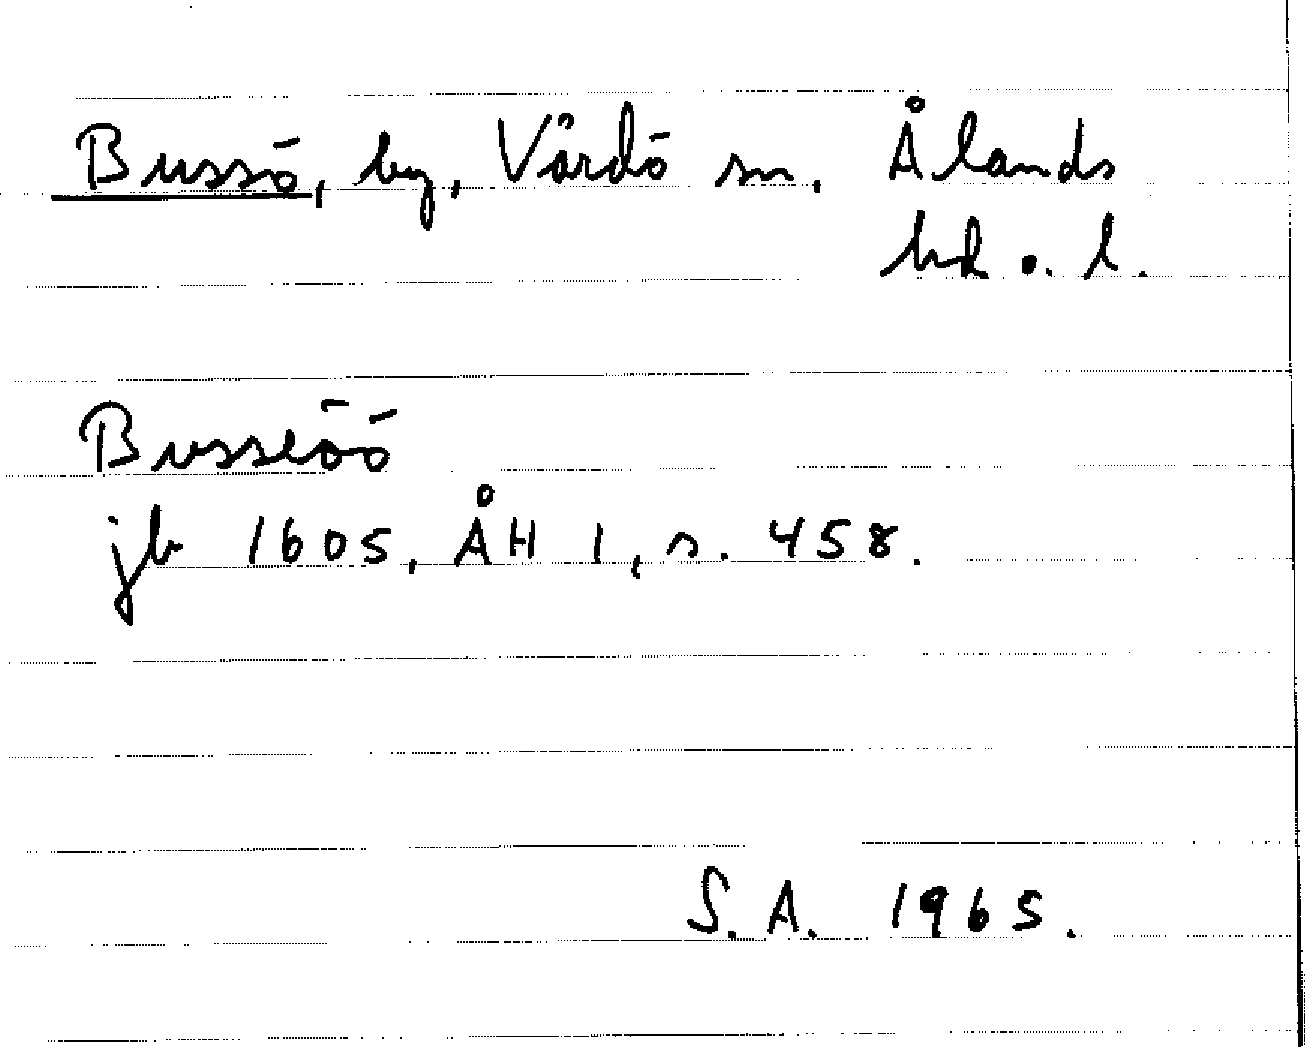 Bussö, by, Vårdö sn, Ålands
hd o. l.
Busseöö
jb 1605, ÅH 1, s. 458.
S. A. 1965.